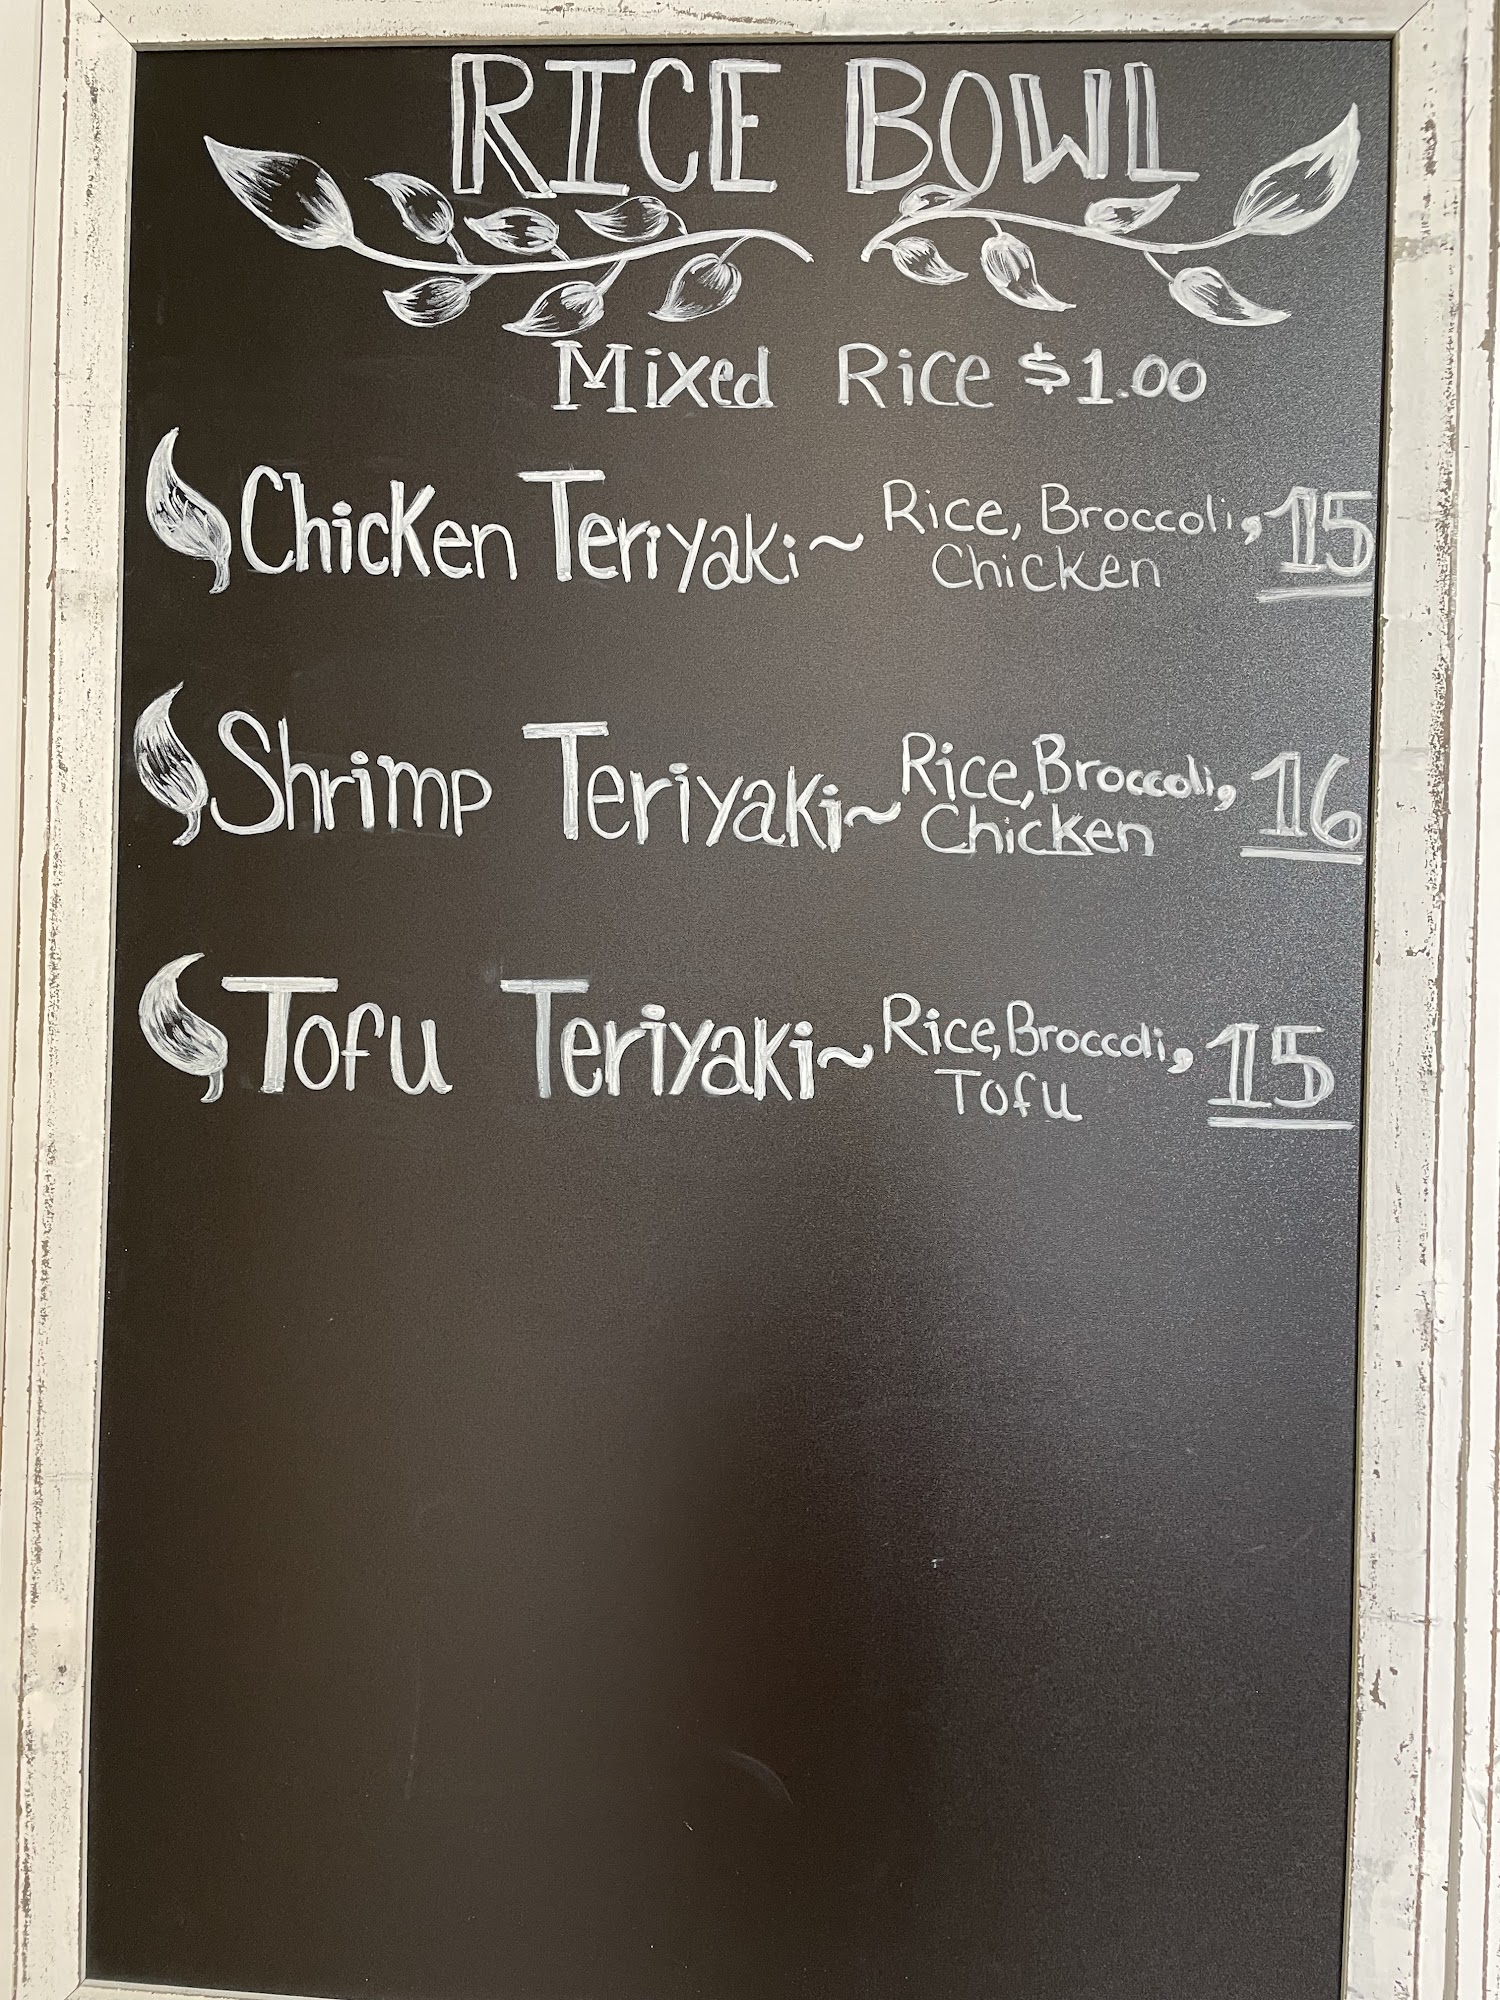 RICE BOWL
Mixed Rice $1.00
Chicken Teriyaki~ Rice, Broccoli, 15
Chicken
Shrimp Teriyaki~ Rice, Broccoli, 16
Chicken
Tofu Teriyaki~ Rice, Broccoli, 15
Tofu